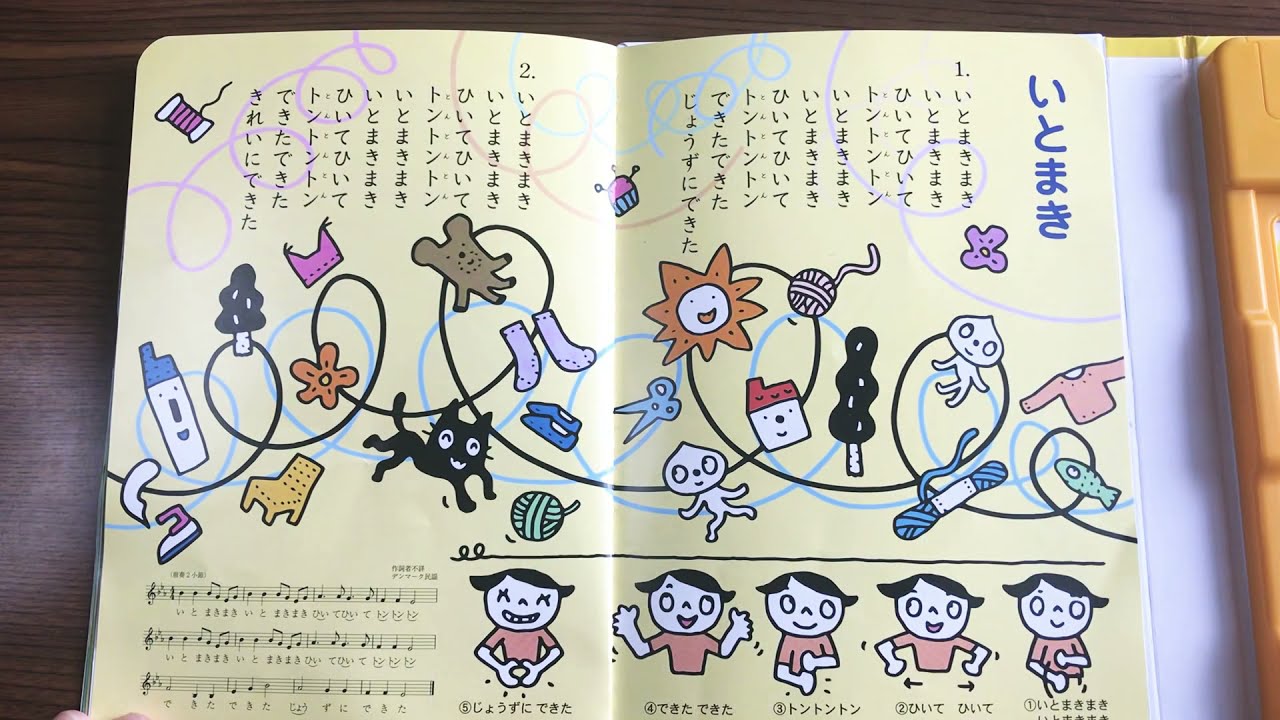 いとまき
1.
いとまきまき
いとまきまき
ひいてひいて
トントントン
いとまきまき
いとまきまき
ひいてひいて
トントントン
できたできた
じょうずにできた
2.
いとまきまき
いとまきまき
ひいてひいて
トントントン
いとまきまき
いとまきまき
ひいてひいて
トントントン
できたできた
きれいにできた
①いとまきまき
いとまきまき
②ひいて ひいて
③トントントン
④できた できた
⑤じょうずに できた
(前奏2小節)
作詞者不詳
デンマーク民謡
いと まきまき いと まきまき ひいてひいて トントントン
いと まきまき いと まきまき ひいてひいて トントントン
で きた で きた じょう ずに で きた